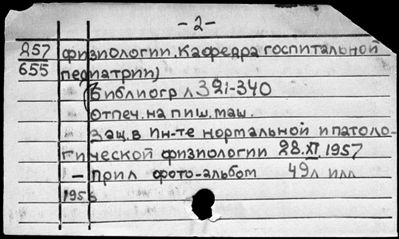 -2-
857 физиологии. Кафедра госпитальной
655 педиатрии)
(Библиогр л 321-340
Отпеч. на пиш. маш.
Защ. в Ин-те нормальной и патоло-
гической физиологии 28.XI 1957
— Прил фото-альбом 49л илл
1956